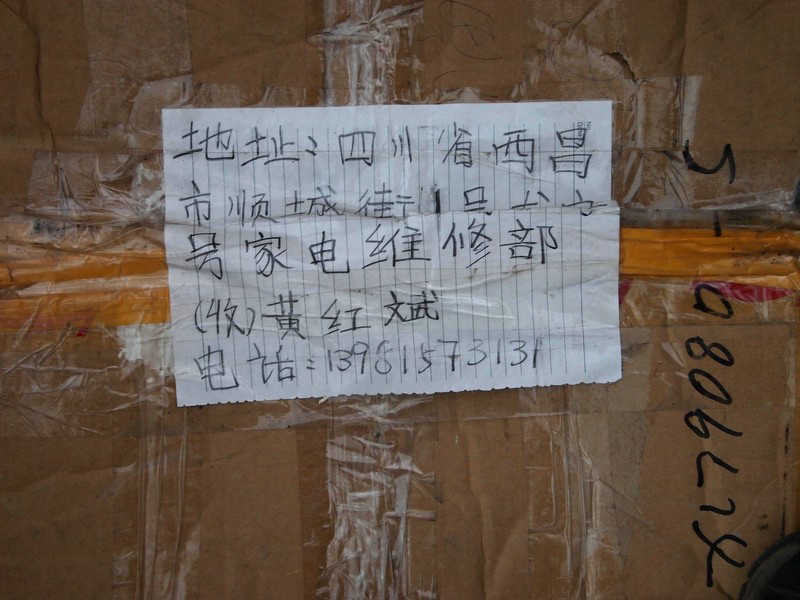 地址:四川省西昌
市顺城街1号
号家电维修部
(收)黄红斌
电话:13981573131